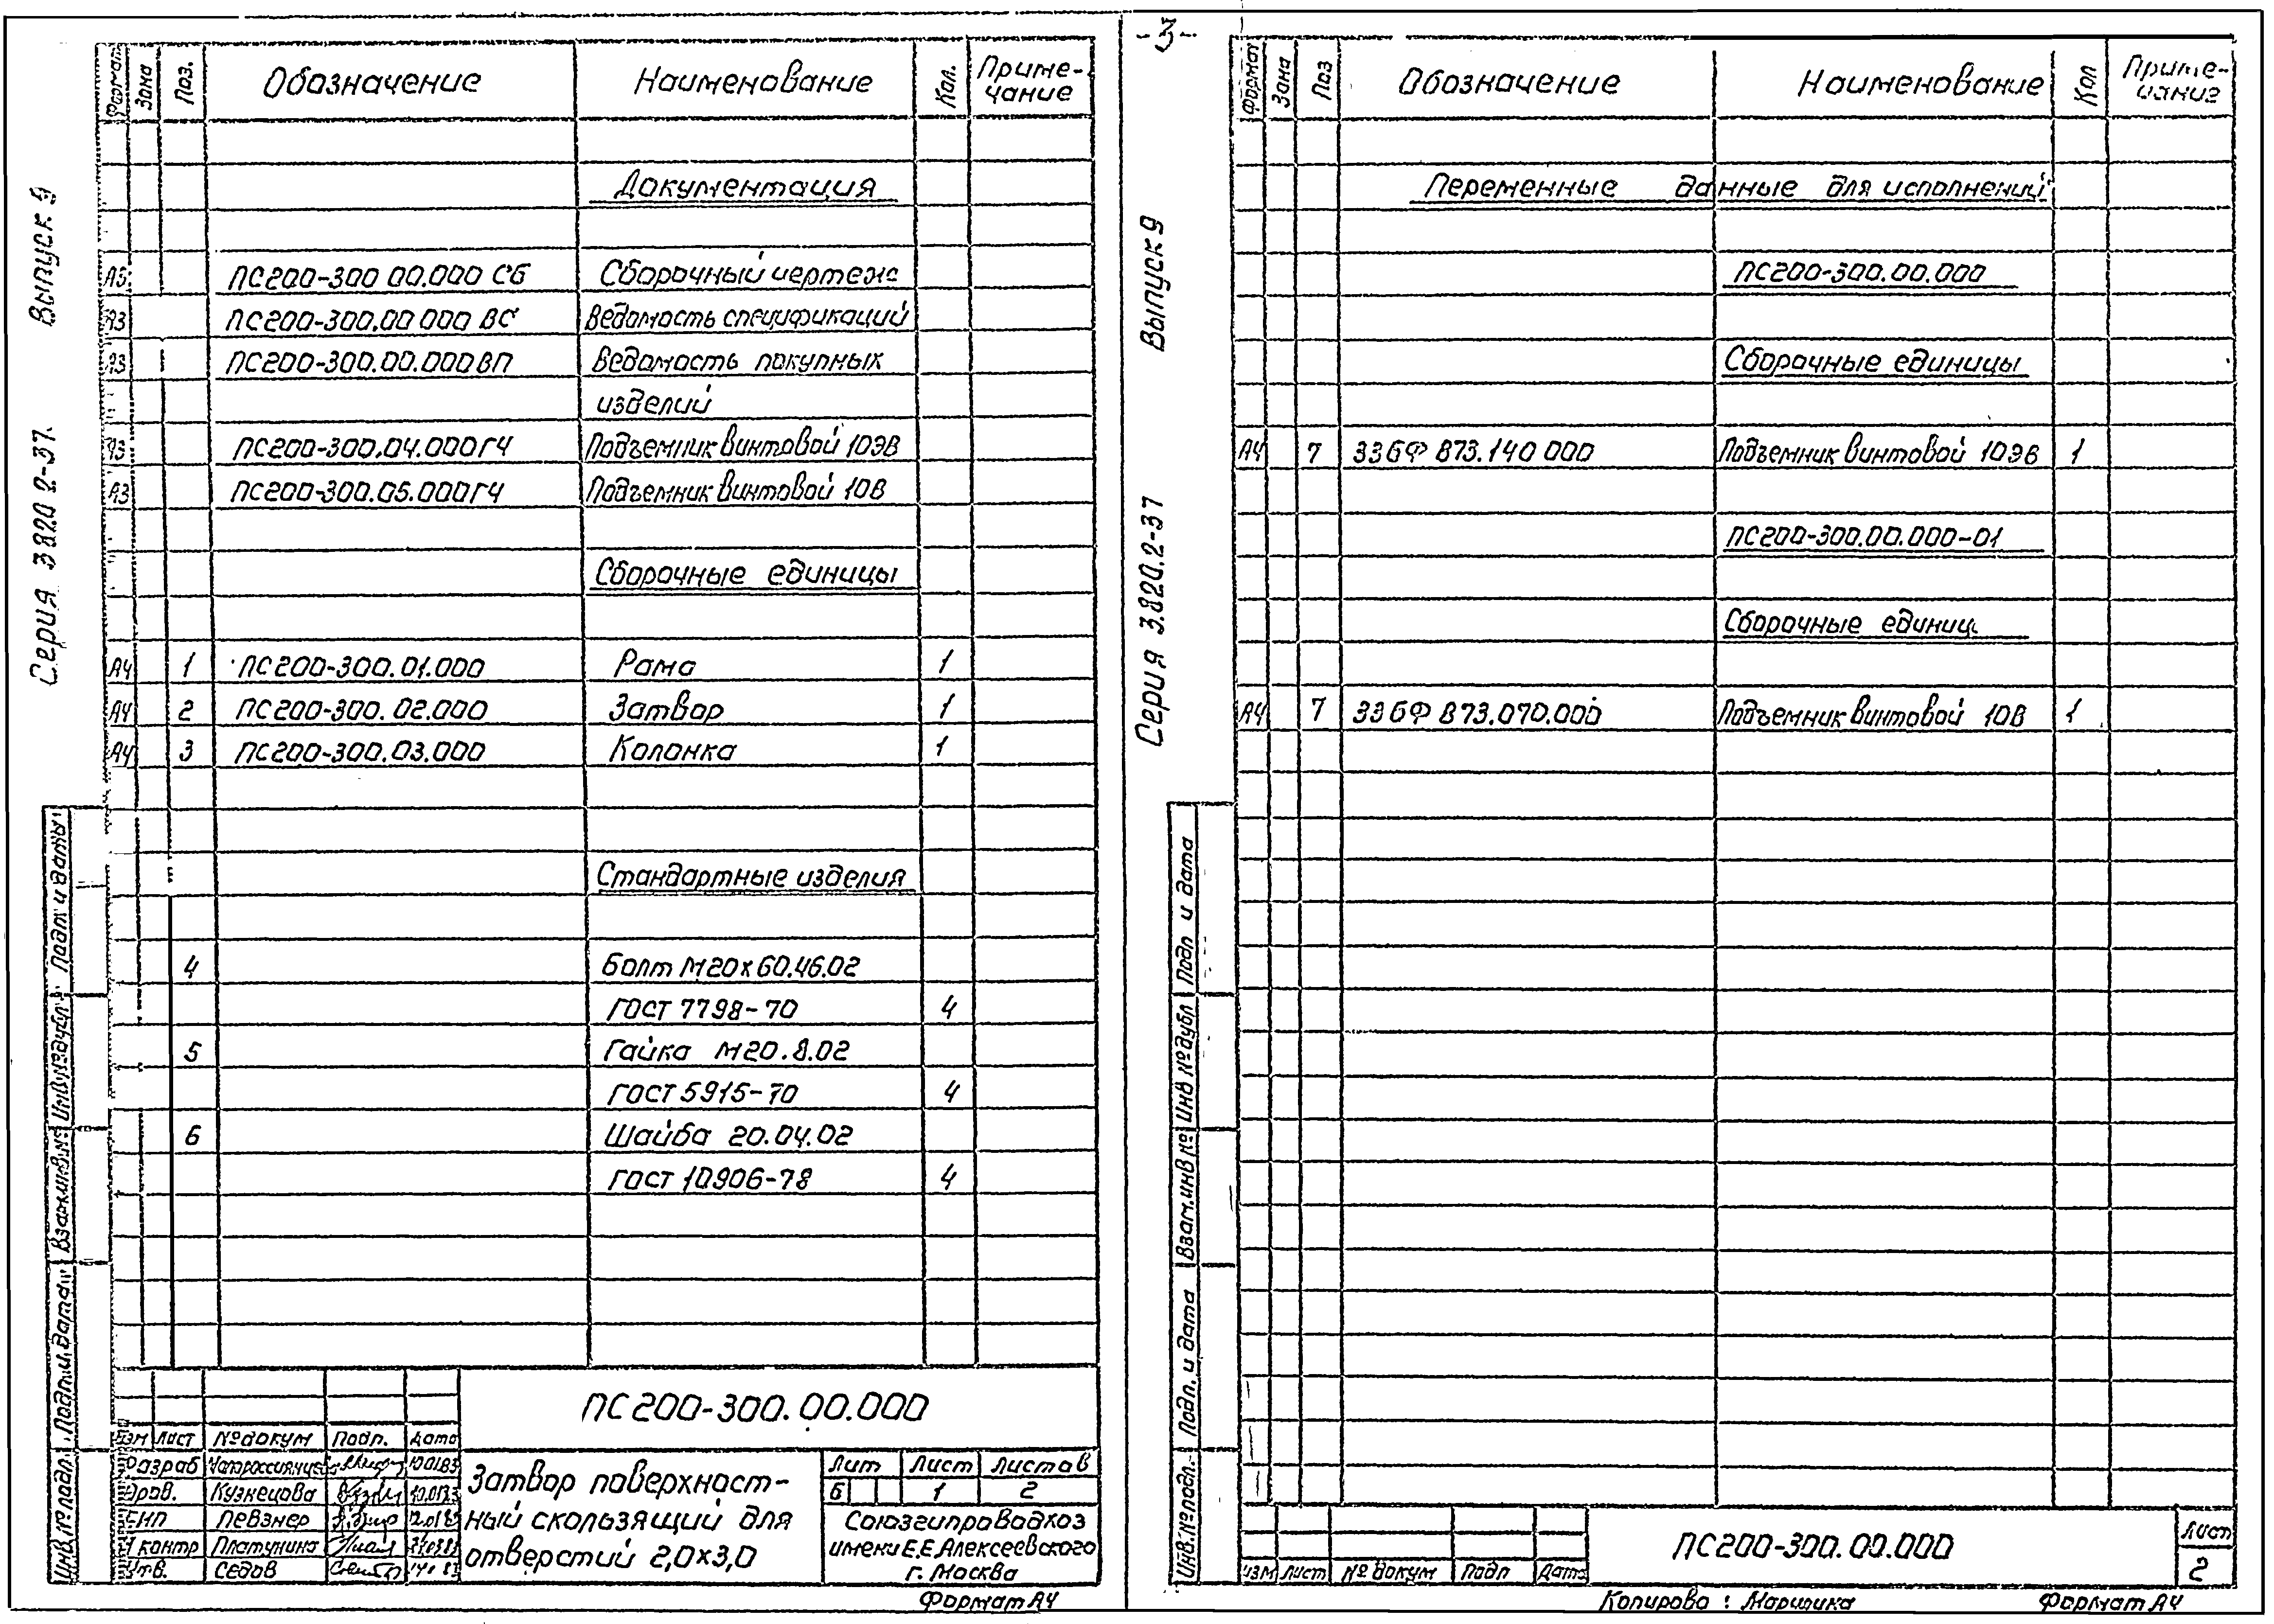 -3-
Серия 3820 2-37. Выпуск 9
Формат Зона Поз. Обозначение Наименование Кол. Приме-
чание
Документация
А3 ПС200-300 00.000 СБ Сборочный чертеж
А3 ПС200-300.00 000 ВС Ведомость спецификаций
А3 ПС200-300.00.000ВП Ведомость покупных
изделий
А3 ПС200-300.04.000ГЧ Подъемник винтовой 10ЭВ
А3 ПС200-300.05.000ГЧ Подъемник винтовой 10В
Сборочные единицы
А4 1 ПС200-300.01.000 Рама 1
А4 2 ПС200-300.02.000 Затвор 1
А4 3 ПС200-300.03.000 Колонка 1
Стандартные изделия
4 Болт М20х60.46.02
ГОСТ 7798-70 4
5 Гайка М20.8.02
ГОСТ 5915-70 4
6 Шайба 20.04.02
ГОСТ 10906-78 4
Инв.№подл. Подп.и дата Взам.инв.№ Инв.№дубл. Подп. и дата
ПС200-300.00.000
Изм Лист №докум Подп. Дата
Разраб 10.01.83
Пров. Кузнецова
ГИП Певзнер
Н контр Платунина
Утв. Седов
Затвор поверхност-
ный скользящий для
отверстий 2,0х3,0
Лит Лист Листов
Б 1 2
Союзгипроводхоз
имени Е.Е.Алексеевского
г. Москва
Формат А4
Серия 3.820.2-37 Выпуск 9
Формат Зона Поз Обозначение Наименование Кол Приме-
чание
Переменные данные для исполнений
ПС200-300.00.000
Сборочные единицы
А4 7 ЗЗБФ 873.140 000 Подъемник винтовой 10ЭВ 1
ПС200-300.00.000-01
Сборочные единиц
А4 7 ЗЗБФ 873.070.000 Подъемник винтовой 10В 1
Инв.№подл. Подп. и дата Взам.инв№ Инв №дубл Подп и дата
ПС200-300.00.000
Лист
2
Изм Лист № докум Подп Дата
Копировал: Формат А4